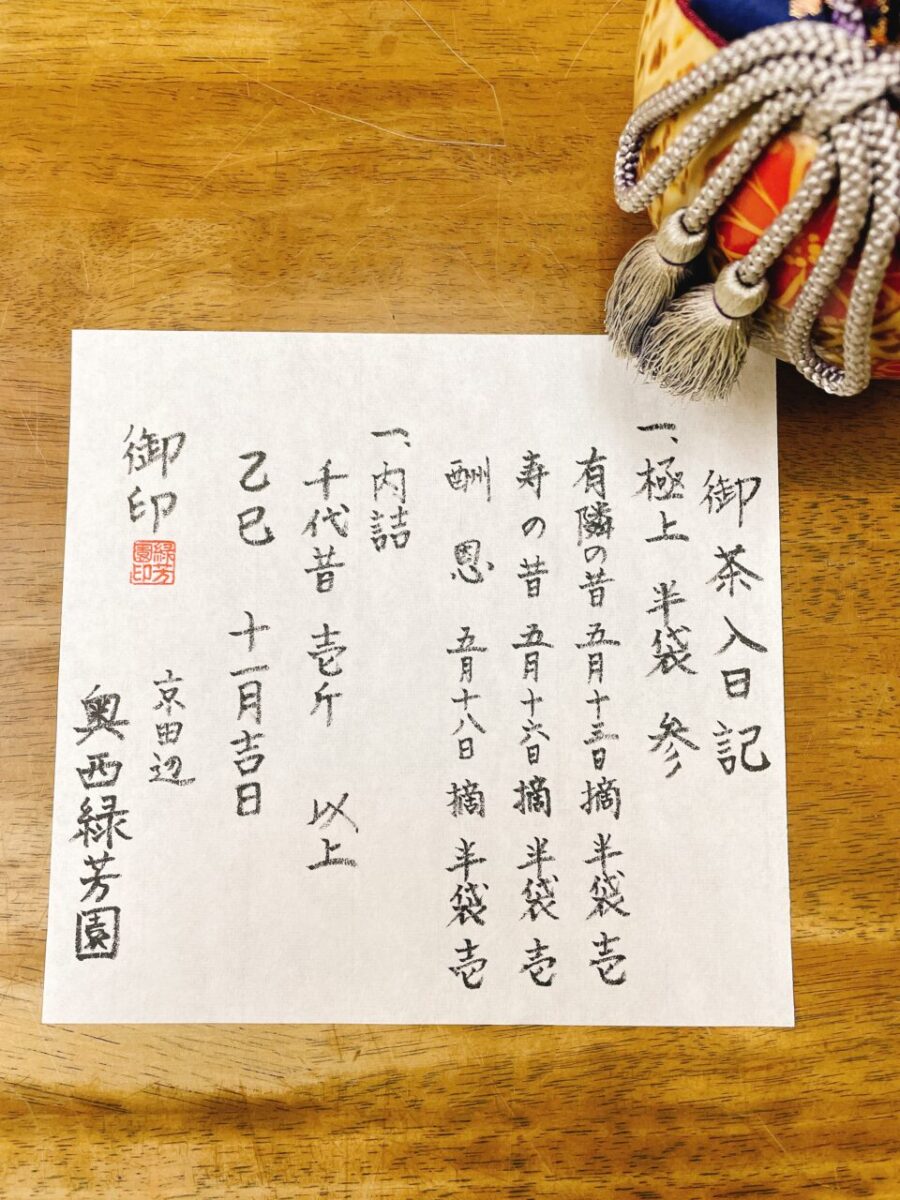 御茶入日記
一、極上 半袋 参
有隣の昔 五月十三日 摘 半袋 壱
寿の昔 五月十六日 摘 半袋 壱
酬恩 五月十八日 摘 半袋 壱
一、内詰
千代昔 壱斤 以上
乙巳 十一月吉日
御印
緑芳園印
京田辺
奥西緑芳園